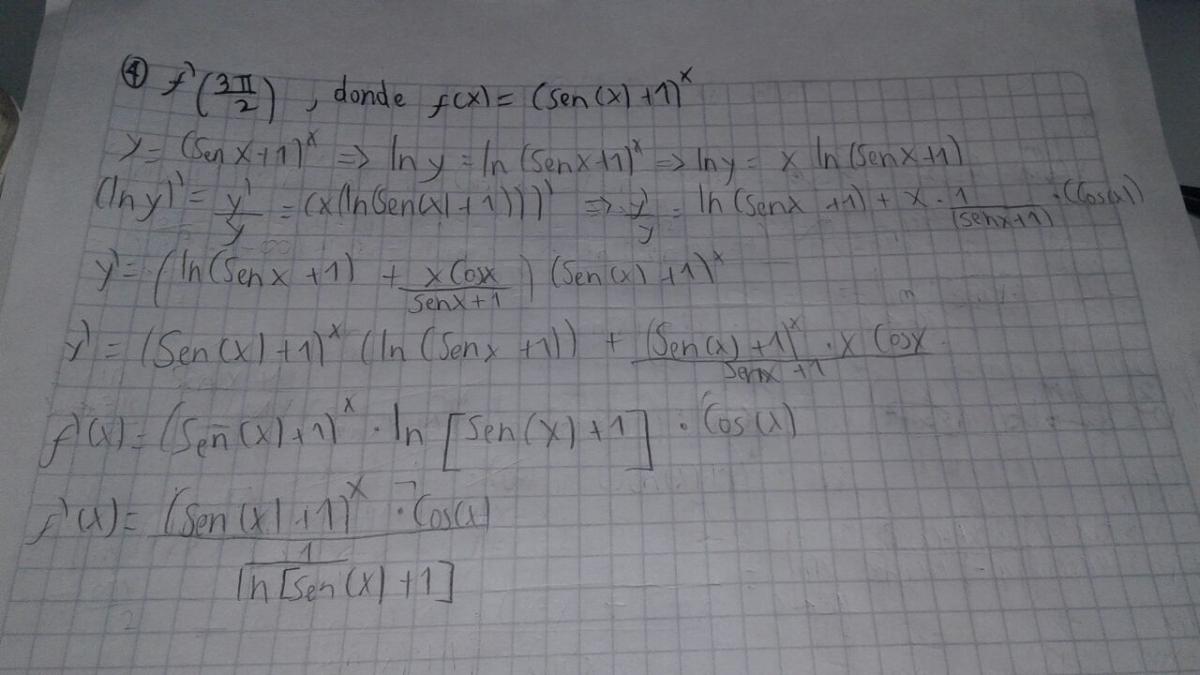 ④ f'(3π/2), donde f(x) = (sen(x)+1)^x
y = (Sen x+1)^x => ln y = ln (Senx+1)^x => ln y = x ln (Senx+1)
(ln y)' = y'/y = (x(ln(Sen(x)+1)))' => y'/y = ln (Senx +1) + x · 1/(senx+1) · (Cos(x))
y' = (ln(Sen x +1) + x Cosx/Senx+1) (Sen(x) +1)^x
y' = (Sen(x)+1)^x (ln (Senx +1)) + (Sen(x)+1)^x · x Cosx/Senx +1
f'(x) = (Sen(x)+1)^x · ln [Sen(x)+1] · Cos(x)
f'(x) = (Sen(x)+1)^x · Cos(x) / 1/ln [Sen(x)+1]